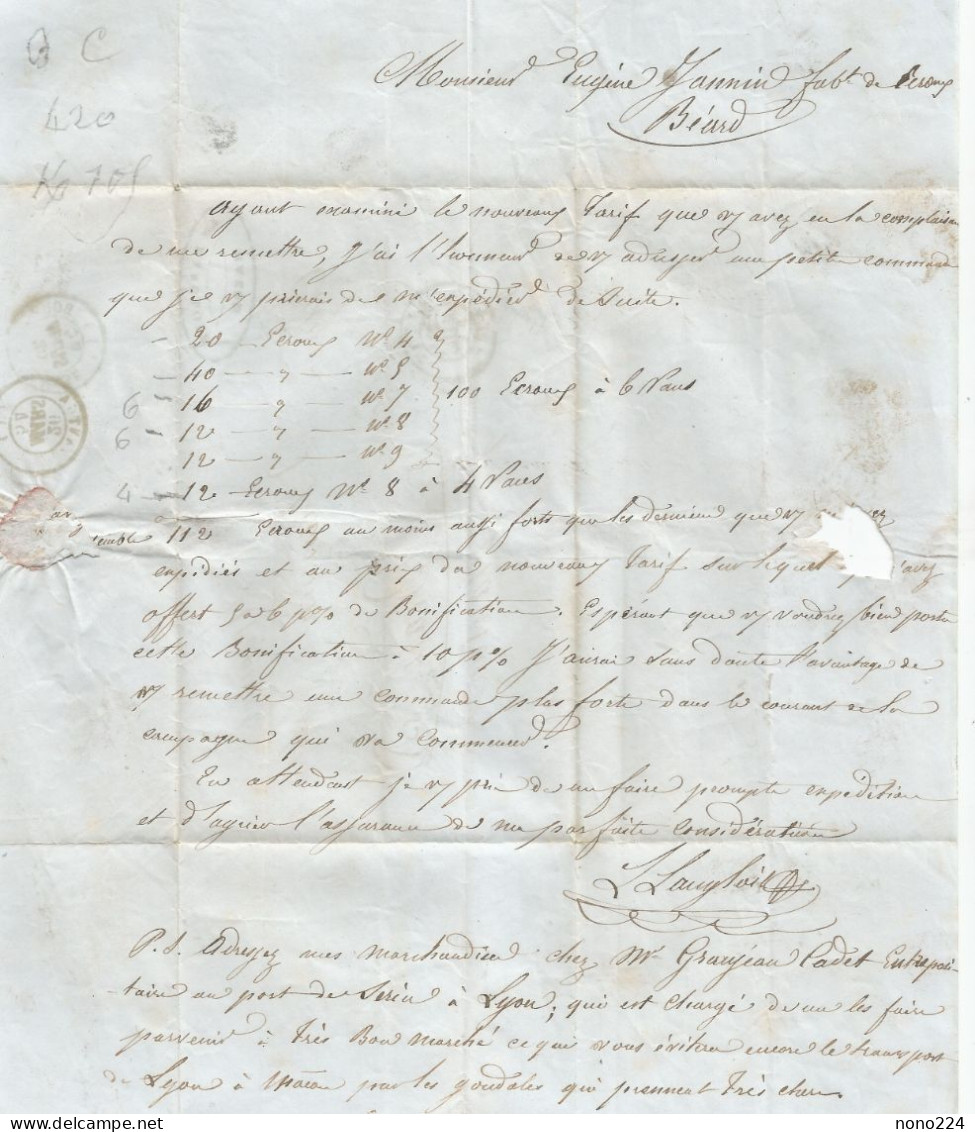 B C
420
Monsieur Eugène Jannin fabt de Ecrous
Béard
Ayant examiné le nouveau Tarif que v/ avez eu la complaisan
de me remettre, J'ai l'honneur de v/ adresser une petite commande
que je v/ prierais de m'expédier de Suite.
- 20 - Ecrous No 4
- 40 - " - No 5
6 - 16 - " - No 7 100 Ecrous à 6 Pans
6 - 12 - " - No 8
12 - " - No 9
4 - 12 - Ecrous No 8 à 4 Pans
112 Ecrous au moins aussi forts que les derniers que v/
expédiés et au prix du nouveau Tarif sur lequel avez
offert 5 à 6 p% de Bonification. Espérant que v/ voudrez bien porter
cette Bonification à 10 p% J'aurai sans doute l'avantage de
v/ remettre une commande plus forte dans le courant de la
campagne qui va commencer.
En attendant je v/ prie de me faire prompte expédition
et d'agréer l'assurance de ma parfaite considération
L Langlois
P.S. Adressez mes marchandises chez Mr Granjean Cadet Entreposi-
taire au port de Serin à Lyon; qui est chargé de me les faire
parvenir à Très Bon marché ce qui vous évitera encore le transport
de Lyon à Macon par les gondoles qui prennent Très cher.
nono224